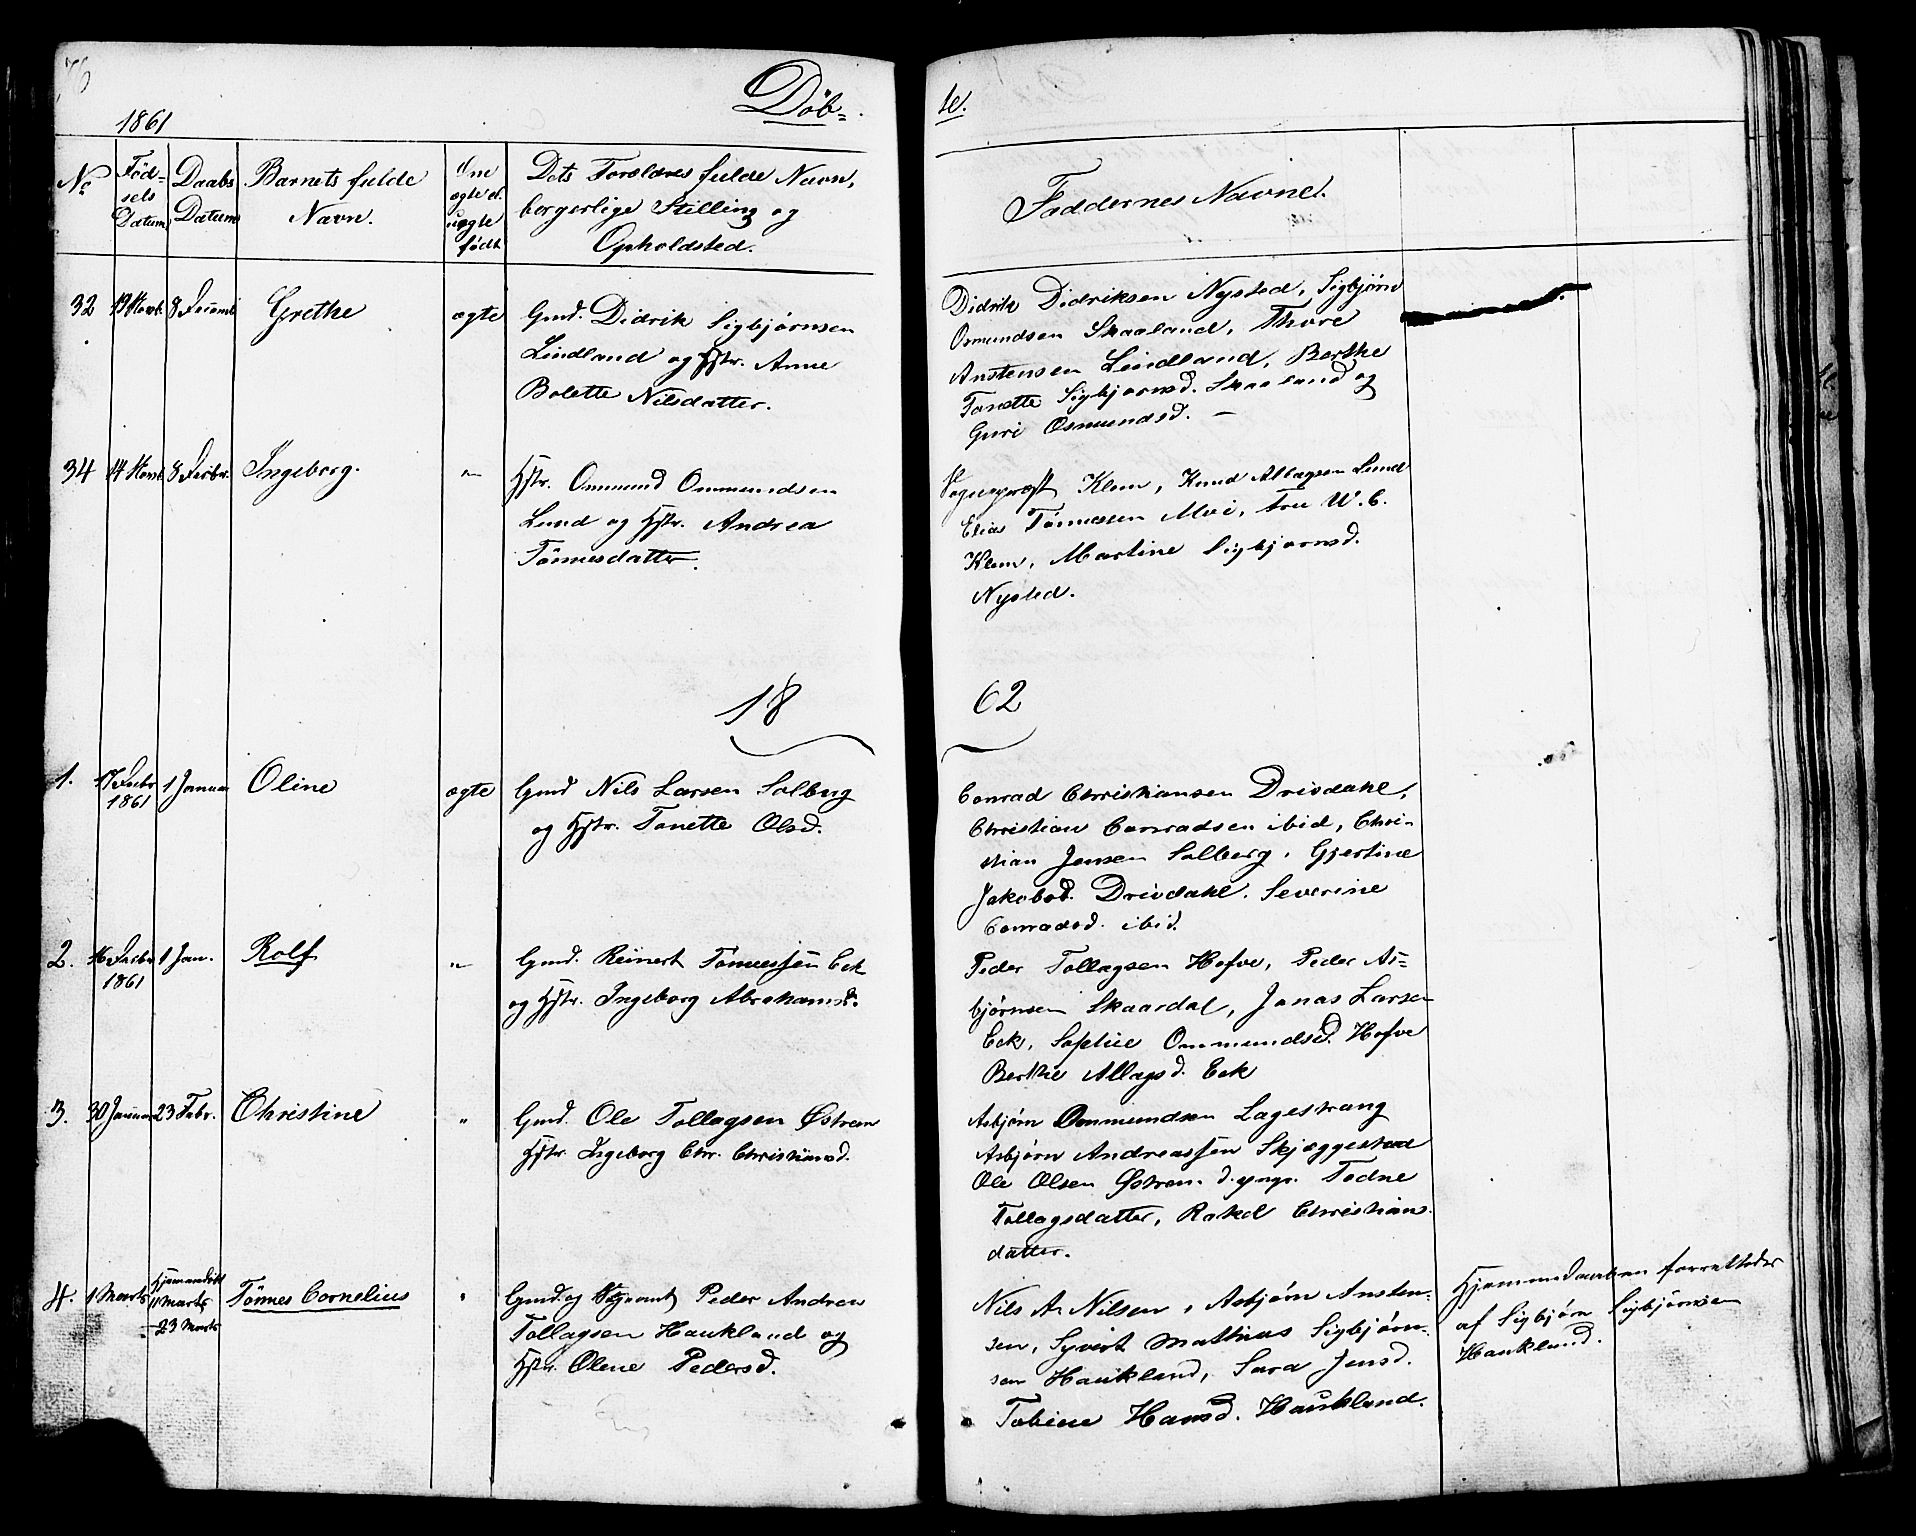 76
1861
Døb-
te.
No
Fød-
sels
Datum
Daabs
Datum
Barnets fulde
Navn.
Om
ægte el.
uægte
født
Dets Forældres fulde Navn,
borgerlige Stilling og
Opholdsted.
Faddernes Navne.
32 19 Novb. 8 Decemb. Grethe ægte
Gmd. Didrik Sigbjørnsen
Lindland og Hstr. Anne
Bolette Nilsdatter.
Didrik Didriksen Nysted, Sigbjørn
Osmundsen Skaaland, Thore
Anstensen Lindland, Berthe
Tonette Sigbjørnsd. Skaaland og
Guri Osmundsd. –
34 14 Novb. 8 Decbr. Ingeborg. "
Hstr. Ommund Ommundsen
Lund og Hstr. Andrea
Tønnesdatter.
Sognepræst Klem, Knud Atlagsen Lund
Elias Tønnessen Moi, Fru W. C.
Klem, Martine Sigbjørnsd.
Nysted.
18
62
1. 17 Decbr 1 Januar Oline ægte
1861
Gmd Nils Larsen Solberg
og Hstr. Tonette Olsd.
Conrad Christiansen Drivdahl,
Christian Conradsen ibid, Chri-
stian Jensen Solberg, Gjertine
Jakobsd. Drivdahl. Severine
Conradsd. ibid.
2. 16 Decbr 1 Jan. Rolf "
1861
Gmd. Reinert Tønnessen Eek
og Hstr. Ingeborg Abrahamsd.
Peder Tollagsen Hofve, Peder As-
bjørnsen Skaardal, Jonas Larsen
Eek, Sophie Ommundsd. Hofve
Berthe Atlagsd. Eek
3. 30 Januar 23 Febr. Christine "
Gmd. Ole Tollagsen Østren
Hstr. Ingeborg Chr. Christiansd.
Asbjørn Ommundsen Lagestrang
Asbjørn Andreassen Skjæggestad
Ole Olsen Østren d. yngr. Todne
Tollagsdatter, Rakel Christians
datter.
4. 1 Marts Hjemmedøbt
11 Marts
23 Marts
Tønnes Cornelius "
Gmd. og Peder Andreas
Tollagsen Haukland og
Hstr. Olene Pedersd.
Nils A. Nilsen, Asbjørn Ansten-
sen, Syvert Mathias Sigbjørn-
sen Haukland, Sara Jensd.
Tobine Hansd. Haukland.
Hjemmedaaben forrettedes
af Sigbjørn Sigbjørnsen
Haukland.